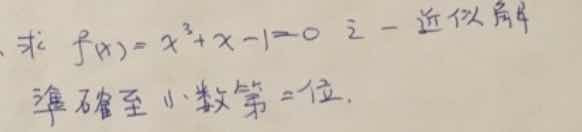 、求 f(x)=x³+x-1=0 之一近似解
準確至小数第二位.